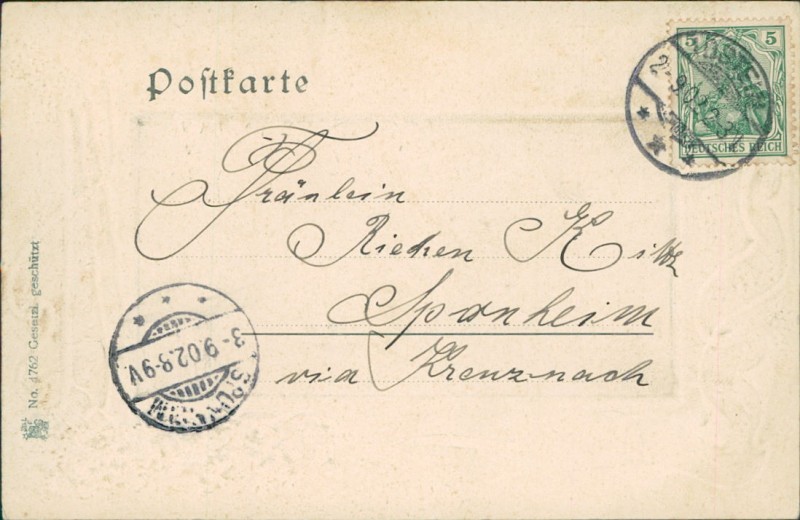 Postkarte
5 5
DEUTSCHES REICH
Fräulein
Riechen
Sponheim
via Kreuznach
3-9.02.8-9V
No. 4762 Gesetzl. geschützt